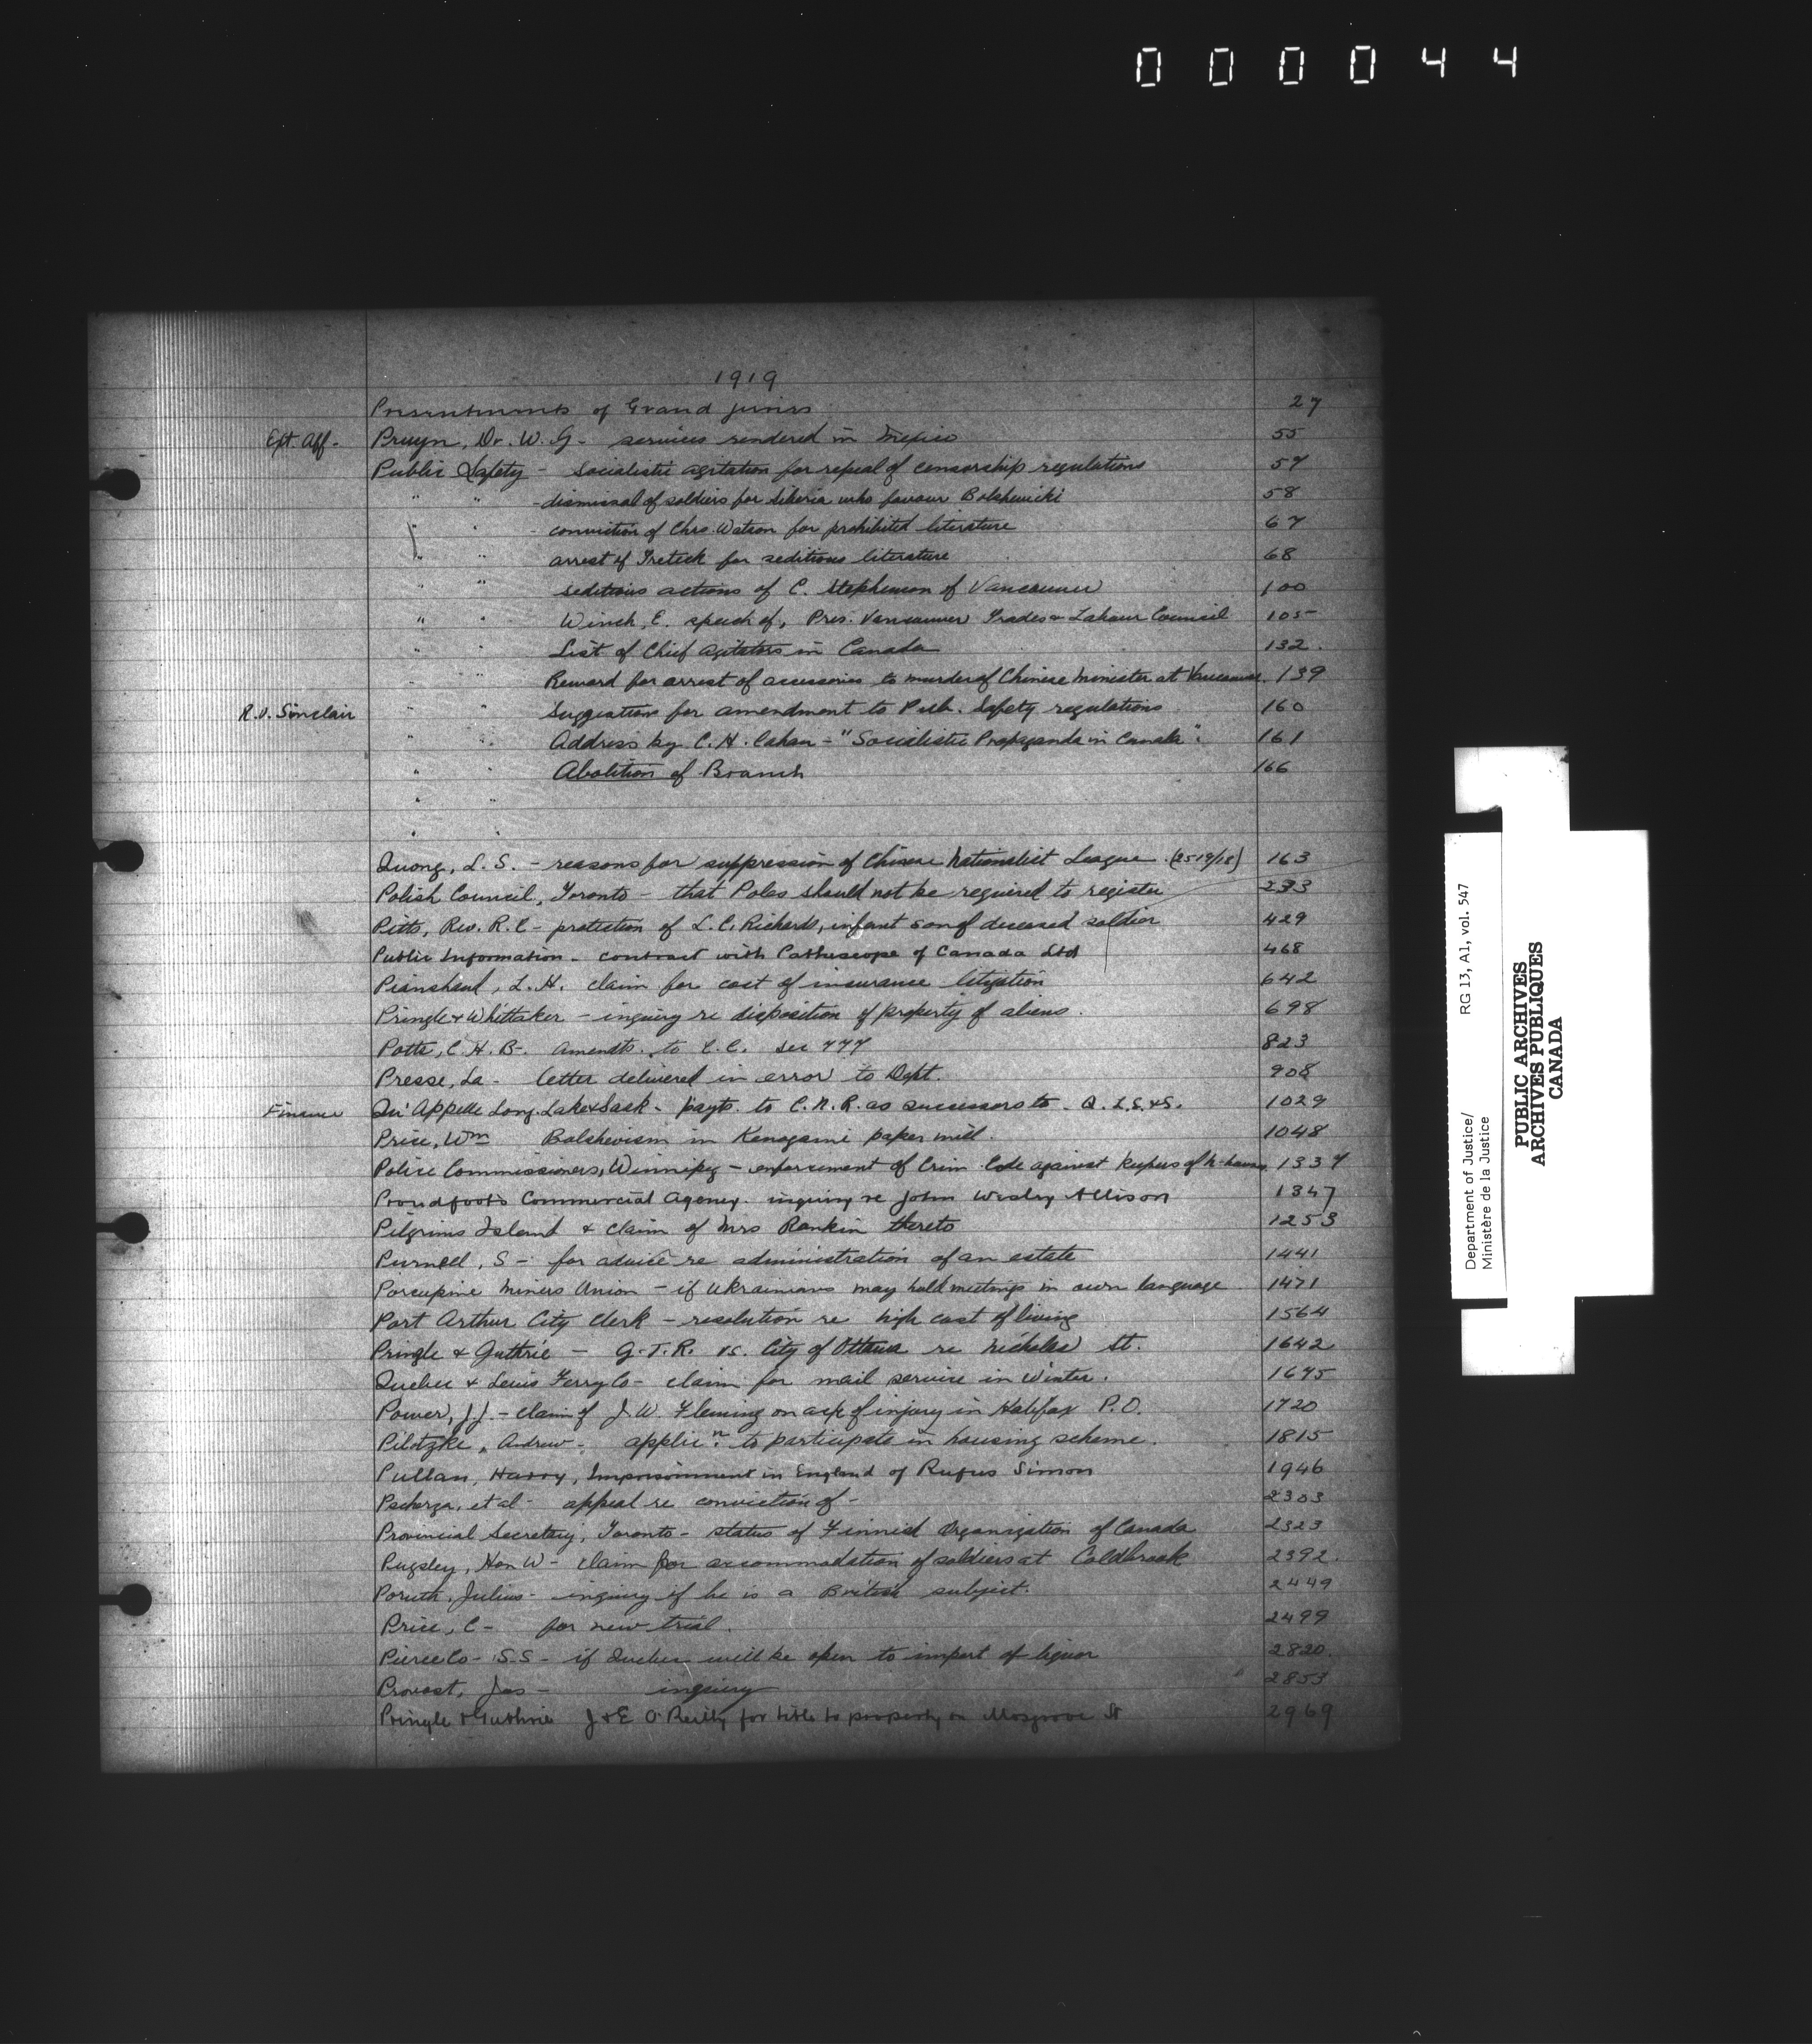 000044
1919
Presentments of Grand Juries 27
Ext. Aff. - Pruyn, Dr. W. G. - services rendered in Mexico 55
Public Safety - Socialistic agitation for repeal of censorship regulations 57
" " - dismissal of soldiers for Siberia who favour Bolsheviki 58
" " - conviction of Chas. Watson for prohibited literature 67
" " arrest of Treteck for seditious literature 68
" " seditious actions of C. Stephenson of Vancouver 100
" " Winch, E. speech of, Pres. Vancouver Trades & Labour Council 105
" " List of Chief agitators in Canada 132.
" " Reward for arrest of accessories to murder of Chinese Minister at Vancouver. 139
R. V. Sinclair " " Suggestions for amendment to Pub. Safety regulations 160
" " Address by C. H. Cahan - "Socialistic Propaganda in Canada". 161
" " Abolition of Branch 166
" "
" "
Quong, L. S. - reasons for suppression of Chinese Nationalist League. (2519/18) 163
Polish Council, Toronto - that Poles should not be required to register 233
Pitts, Rev. R. C - protection of L. C. Richards, infant son of deceased soldier 429
Public Information - contract with Pathescope of Canada Ltd 468
L. H. claim for cost of insurance litigation 642
Pringle & Whittaker - inquiry re disposition of property of aliens. 698
Potts, C. H. B - Amendts. to C. C. Sec 777 823
Presse, La - letter delivered in error to Dept. 908
Finance Qu'Appelle Long Lake & Sask - payts. to C. N. R. as successors to Q. L. S. & S. 1029
Price, Wm Bolshevism in Kenogami paper mill. 1048
Police Commissioners, Winnipeg - enforcement of Crim. Code against keepers of h-houses. 1337
Proudfoots Commercial Agency. inquiry re John Wesley Allison 1347
Pilgrims Island & claim of Mrs Rankin thereto 1253
Purnell, S - for advice re administration of an estate 1441
Porcupine Miners Union - if Ukrainians may hold meetings in own language 1471
Port Arthur City Clerk - resolution re high cost of living 1564
Pringle & Guthrie - G. T. R. vs. City of Ottawa re Nicholas St. 1642
Quebec & Levis Ferry Co - claim for mail service in Winter. 1675
Power, J. J. - claim of J. W. Fleming on a/c of injury in Halifax P.O. 1720
Pilotzke, Andrew - applicn. to participate in housing scheme. 1815
Pullan, Harry, Imprisonment in England of Rufus Simon 1946
et al - appeal re conviction of - 2303
Provincial Secretary, Toronto - status of Finnish Organization of Canada 2323
Pugsley, Hon W - claim for accommodation of soldiers at Coldbrook 2392.
Poruth, Julius - inquiry if he is a British subject. 2449
Price, C - for new trial. 2499
Pierce Co - S.S - if Quebec will be open to import of liquor 2820.
Provost, Jas - inquiry 2853
Pringle & Guthrie J & E O'Reilly for title to property on Mosgrove St 2969
Department of Justice/
Ministère de la Justice
RG 13, A1, vol. 547
PUBLIC ARCHIVES
ARCHIVES PUBLIQUES
CANADA